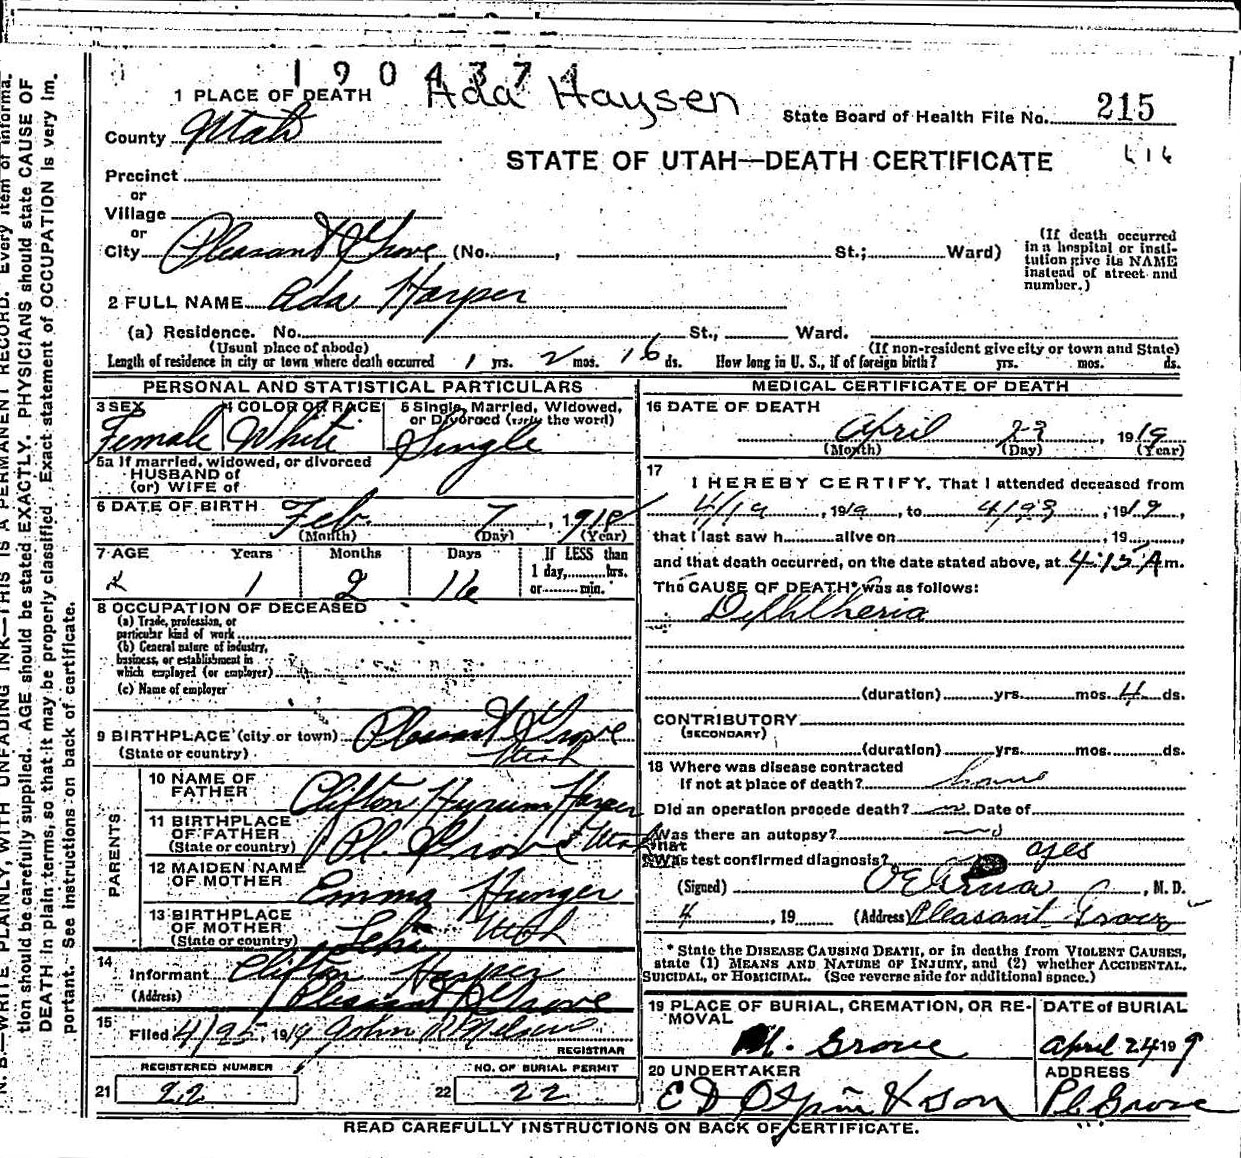 1904374
Ada Haysen
1 PLACE OF DEATH
State Board of Health File No. 215
County Utah
STATE OF UTAH—DEATH CERTIFICATE
Precinct
or
Village
or
City Pleasant Grove (No. , St.; Ward)
(If death occurred in a hospital or institution give its NAME instead of street and number.)
2 FULL NAME Ada Harper
(a) Residence. No. St., Ward.
(Usual place of abode) (If non-resident give city or town and State)
Length of residence in city or town where death occurred 1 yrs. 2 mos. 16 ds. How long in U. S., if of foreign birth? yrs. mos. ds.
PERSONAL AND STATISTICAL PARTICULARS
3 SEX Female
4 COLOR OR RACE White
5 Single, Married, Widowed, or Divorced (write the word) Single
5a If married, widowed, or divorced
HUSBAND of
(or) WIFE of
6 DATE OF BIRTH Feb. 7, 1918
(Month) (Day) (Year)
7 AGE Years Months Days If LESS than
1 2 16 1 day, hrs.
or min.
8 OCCUPATION OF DECEASED
(a) Trade, profession, or
particular kind of work
(b) General nature of industry,
business, or establishment in
which employed (or employer)
(c) Name of employer
9 BIRTHPLACE (city or town) Pleasant Grove
(State or country) Utah
PARENTS
10 NAME OF FATHER Clifton Hyrum Harper
11 BIRTHPLACE OF FATHER (State or country) Pl. Grove Utah
12 MAIDEN NAME OF MOTHER Emma Hunger
13 BIRTHPLACE OF MOTHER (State or country) Lehi Utah
14 Informant Clifton Harper
(Address) Pleasant Grove
15 Filed 4/25, 1919 John R Nelson
REGISTRAR
REGISTERED NUMBER NO. OF BURIAL PERMIT
21 22 22 22
MEDICAL CERTIFICATE OF DEATH
16 DATE OF DEATH
April 23, 1919
(Month) (Day) (Year)
17
I HEREBY CERTIFY, That I attended deceased from
4/19, 1919, to 4/23, 1919,
that I last saw h alive on , 19 ,
and that death occurred, on the date stated above, at 4:15 A.m.
The CAUSE OF DEATH* was as follows:
Diphtheria
(duration) yrs. mos. 4 ds.
CONTRIBUTORY
(SECONDARY)
(duration) yrs. mos. ds.
18 Where was disease contracted
if not at place of death? home
Did an operation precede death? no Date of
Was there an autopsy? no
What
Was test confirmed diagnosis? yes
(Signed) , M. D.
4 , 19 (Address) Pleasant Grove
* State the DISEASE CAUSING DEATH, or in deaths from VIOLENT CAUSES,
state (1) MEANS AND NATURE OF INJURY, and (2) whether ACCIDENTAL,
SUICIDAL, or HOMICIDAL. (See reverse side for additional space.)
19 PLACE OF BURIAL, CREMATION, OR REMOVAL DATE of BURIAL
Pl. Grove April 24 1919
20 UNDERTAKER ADDRESS
E D Olpin & Son Pl. Grove
READ CAREFULLY INSTRUCTIONS ON BACK OF CERTIFICATE.
N. B.—WRITE PLAINLY, WITH UNFADING INK—THIS IS A PERMANENT RECORD. Every item of informa-
tion should be carefully supplied. AGE should be stated EXACTLY. PHYSICIANS should state CAUSE OF
DEATH in plain terms, so that it may be properly classified. Exact statement of OCCUPATION is very im-
portant. See instructions on back of certificate.